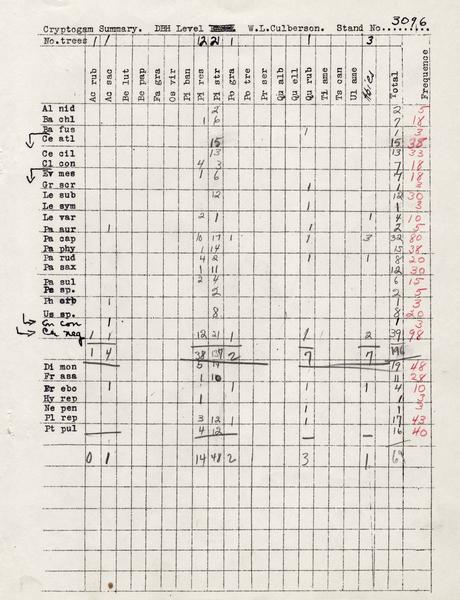 Cryptogam Summary. DBH Level W.L.Culberson. Stand No. 3096
No. trees 1 1 12 21 1 1 3
Ac rub Ac sac Be lut Be pap Fa gra Os vir Pi ban Pi res Pi str Po gra Po tre Pr ser Qu alb Qu ell Qu rub Ti ame Ts can Ul ame Total Frequence
Al nid 2 2 5
Ba chl 1 6 7 18
Ba fus 1 1 3
Ce atl 15 15 38
Ce cil 13 13 33
Cl con 4 3 7 18
Ev mes 1 6 18
Gr scr 1 1 3
Le sub 12 12 30
Le sym 1 1 3
Le var 2 1 1 4 10
Pa aur 1 1 2 5
Pa cap 10 17 1 1 3 32 80
Pa phy 1 14 15 38
Pa rud 4 2 1 1 8 20
Pa sax 1 11 12 30
Pa sul 2 4 6 15
Pe sp. 2 2 5
Ph orb 1 1 3
Us sp. 8 8 20
con 1 1 3
neg 1 1 12 21 1 1 2 39 98
1 4 38 137 2 7 7 196
Di mon 5 14 19 48
Fr asa 1 10 11 28
Fr ebo 1 1 1 1 4 10
Hy rep 1 1 3
Ne pen 1 1 3
Pl rep 3 12 1 1 17 43
Pt pul 4 12 16 40
0 1 14 48 2 3 1 69